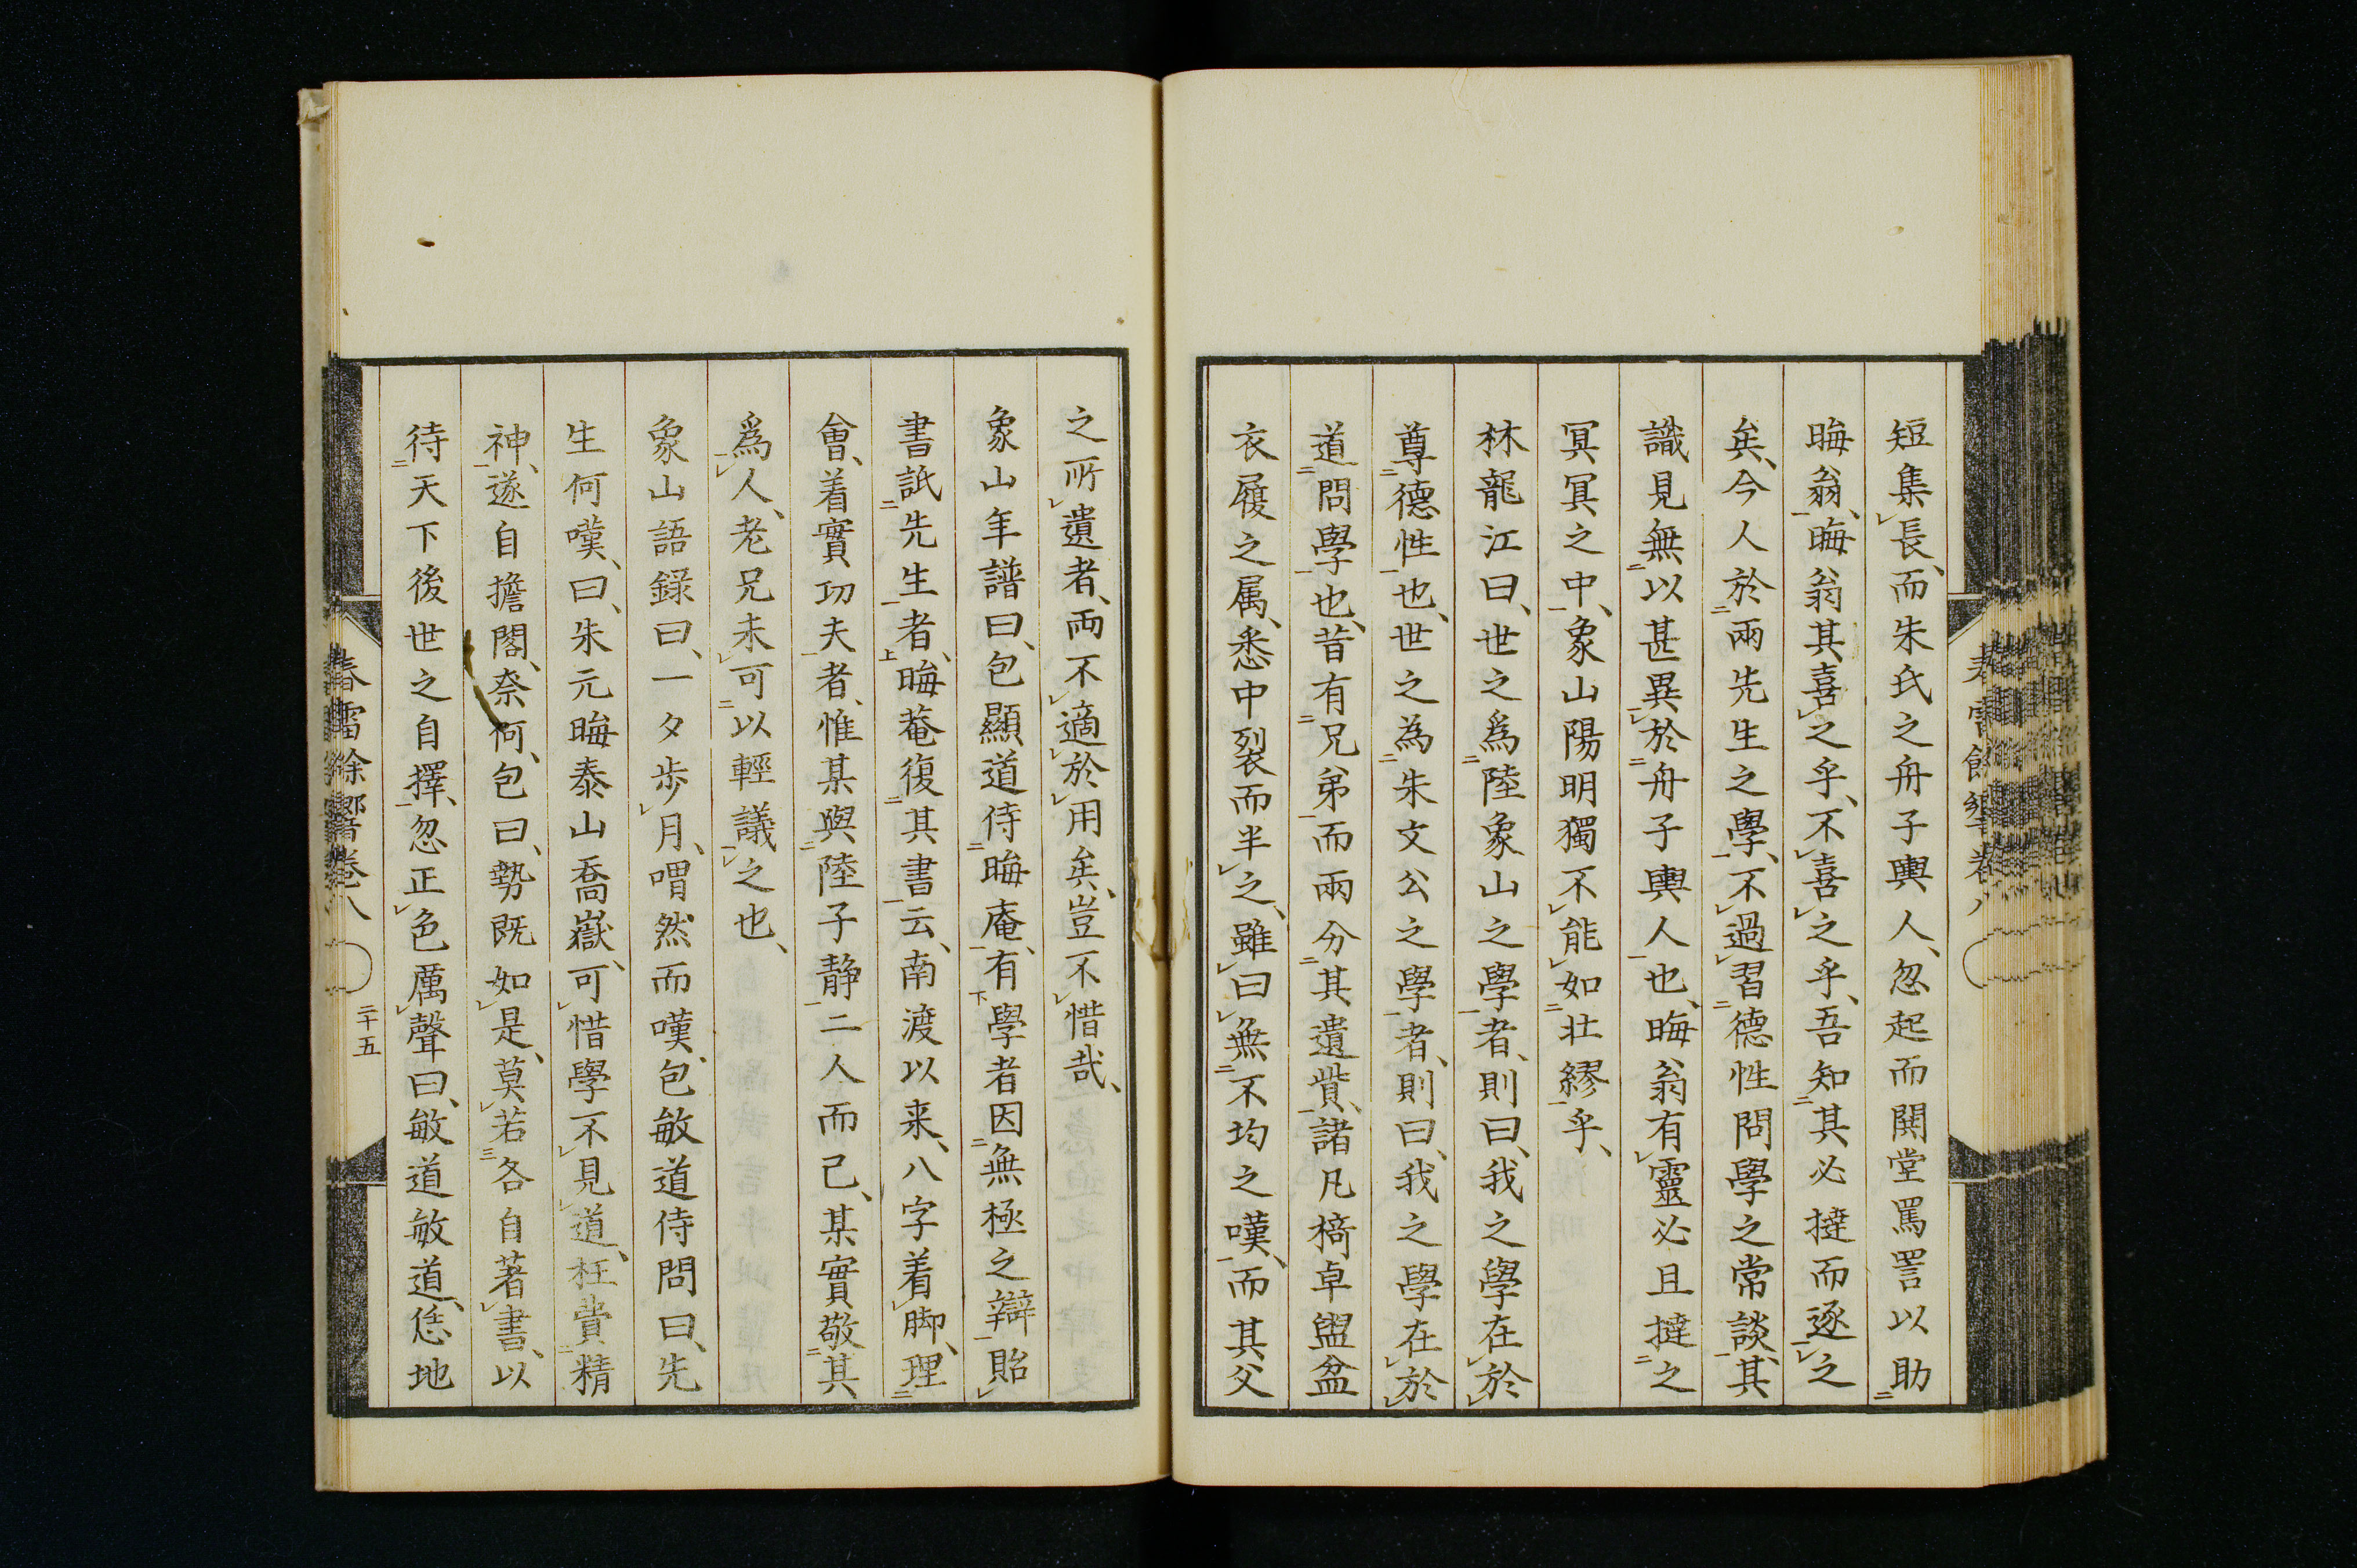 短集長、而朱氏之舟子輿人、忽起而閧堂罵詈以助
晦翁、晦翁其喜之乎、不喜之乎、吾知其必撻而逐之
矣、今人於兩先生之學、不過習德性問學之常談、其
識見無以甚異於舟子輿人也、晦翁有靈必且撻之
冥冥之中、象山陽明獨不能如壮繆乎、
林龍江曰、世之爲陸象山之學者、則曰、我之學在於
尊德性也、世之為朱文公之學者、則曰、我之學在於
道問學也、昔有兄弟而兩分其遺貲、諸凡椅卓盥盆
衣履之属、悉中裂而半之、雖曰無不均之嘆、而其父
之所遺者、兩不適於用矣、豈不惜哉、
象山年譜曰、包顯道侍晦庵、有學者因無極之辯貽
書詆先生者、晦菴復其書云、南渡以来、八字着脚、理
會着實功夫者、惟某與陸子静二人而已、某實敬其
爲人、老兄未可以輕議之也、
象山語錄曰、一夕步月、喟然而嘆、包敏道侍問曰、先
生何嘆、曰、朱元晦泰山喬嶽、可惜學不見道、枉費精
神、遂自擔閣、奈何、包曰、勢既如是、莫若各自著書、以
待天下後世之自擇、忽正色厲聲曰、敏道敏道、恁地
春雷餘響卷八
二十五